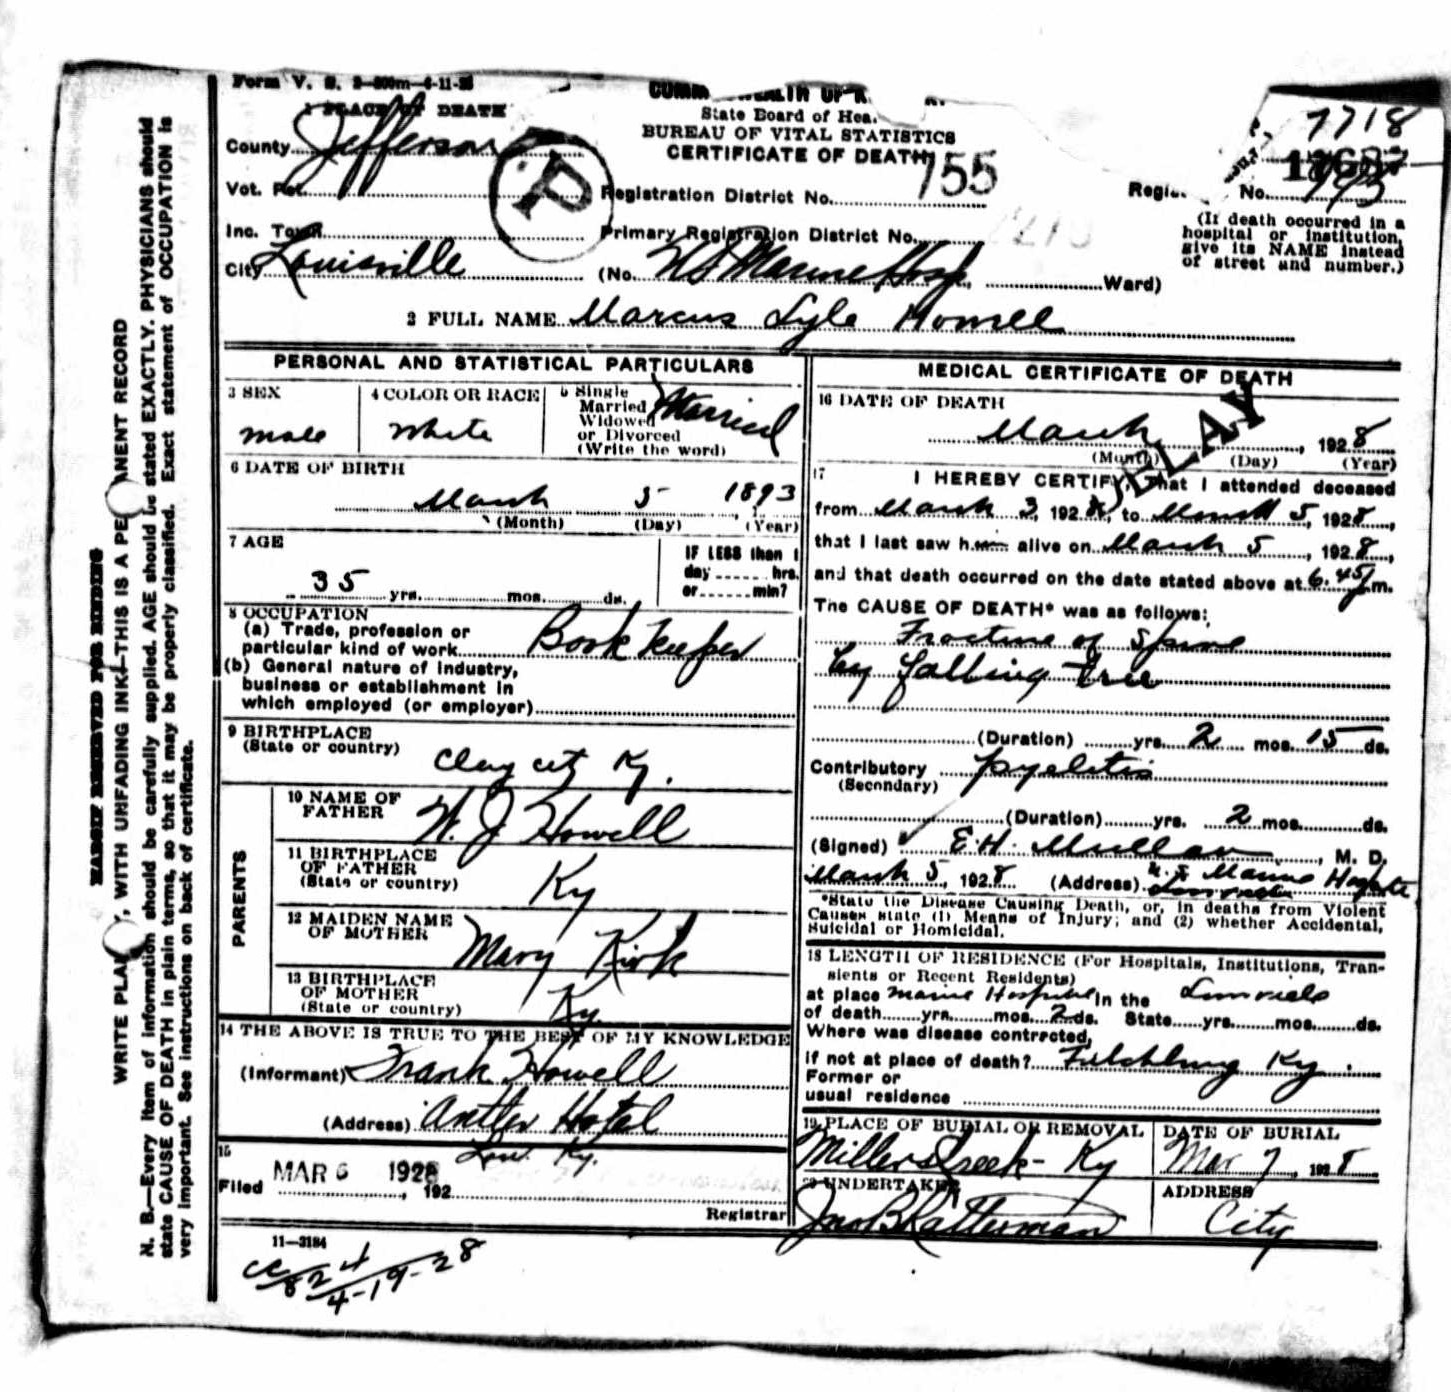 Form V. S. 2-500m-4-11-25
1 PLACE OF DEATH
County Jefferson
Vot. Pct.
Inc. Town
City Louisville
State Board of Hea.
BUREAU OF VITAL STATISTICS
CERTIFICATE OF DEATH
P
755
Registration District No.
Primary Registration District No.
(No. U S Marine Hosp. Ward)
7718
Regis. No. 793
(If death occurred in a
hospital or institution,
give its NAME instead
of street and number.)
2 FULL NAME Marcus Lyle Howell
PERSONAL AND STATISTICAL PARTICULARS
3 SEX
male
4 COLOR OR RACE
White
5 Single
Married
Widowed
or Divorced
(Write the word)
Married
6 DATE OF BIRTH
March 5 1893
(Month) (Day) (Year)
7 AGE
35 yrs. mos. ds.
IF LESS than 1
day hrs.
or min?
8 OCCUPATION
(a) Trade, profession or
particular kind of work Book keeper
(b) General nature of industry,
business or establishment in
which employed (or employer)
9 BIRTHPLACE
(State or country)
Clay city Ky.
PARENTS
10 NAME OF
FATHER W. J Howell
11 BIRTHPLACE
OF FATHER
(State or country) Ky
12 MAIDEN NAME
OF MOTHER Mary Kirk
13 BIRTHPLACE
OF MOTHER
(State or country) Ky.
14 THE ABOVE IS TRUE TO THE BEST OF MY KNOWLEDGE
(Informant) Frank Howell
(Address) Antler Hotel
Lou. Ky.
15
Filed MAR 6 1928, 192
Registrar
11-3184
cc 824
4-19-28
MEDICAL CERTIFICATE OF DEATH
16 DATE OF DEATH
March, 1928
(Month) (Day) (Year)
DELAY
17 I HEREBY CERTIFY, That I attended deceased
from March 3, 1928, to March 5, 1928,
that I last saw him alive on March 5, 1928,
and that death occurred on the date stated above at 6.45 m.
The CAUSE OF DEATH* was as follows:
Fracture of Spine
by falling tree
(Duration) yrs. 2 mos. 15 ds.
Contributory Pyelitis
(Secondary)
(Duration) yrs. 2 mos. ds.
(Signed) E. H. Mullan, M. D.
March 5, 1928 (Address) U. S Marine Hospital
Louisville
*State the Disease Causing Death, or, in deaths from Violent
Causes state (1) Means of Injury; and (2) whether Accidental,
Suicidal or Homicidal.
18 LENGTH OF RESIDENCE (For Hospitals, Institutions, Tran-
sients or Recent Residents)
at place Marine Hospital In the Louisville
of death yrs. mos. 2 ds. State yrs. mos. ds.
Where was disease contracted,
if not at place of death? Fitchburg Ky.
Former or
usual residence
19 PLACE OF BURIAL OR REMOVAL
Millers Creek - Ky
DATE OF BURIAL
Mar 7, 1928
20 UNDERTAKER
Jno B Ratterman
ADDRESS
City
MARGIN RESERVED FOR BINDING
WRITE PLAINLY, WITH UNFADING INK—THIS IS A PERMANENT RECORD
N. B.—Every item of information should be carefully supplied. AGE should be stated EXACTLY. PHYSICIANS should
state CAUSE OF DEATH in plain terms, so that it may be properly classified. Exact statement of OCCUPATION is
very important. See instructions on back of certificate.